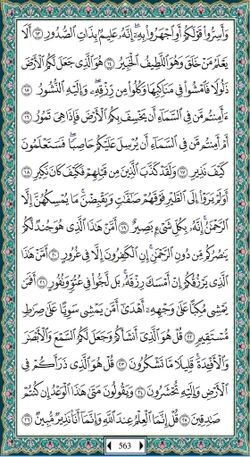 وَأَسِرُّوا۟ قَوْلَكُمْ أَوِ ٱجْهَرُوا۟ بِهِۦٓ ۖ إِنَّهُۥ عَلِيمٌۢ بِذَاتِ ٱلصُّدُورِ ١٣ أَلَا
يَعْلَمُ مَنْ خَلَقَ وَهُوَ ٱللَّطِيفُ ٱلْخَبِيرُ ١٤ هُوَ ٱلَّذِى جَعَلَ لَكُمُ ٱلْأَرْضَ
ذَلُولًا فَٱمْشُوا۟ فِى مَنَاكِبِهَا وَكُلُوا۟ مِن رِّزْقِهِۦ ۖ وَإِلَيْهِ ٱلنُّشُورُ ١٥
ءَأَمِنتُم مَّن فِى ٱلسَّمَآءِ أَن يَخْسِفَ بِكُمُ ٱلْأَرْضَ فَإِذَا هِىَ تَمُورُ ١٦
أَمْ أَمِنتُم مَّن فِى ٱلسَّمَآءِ أَن يُرْسِلَ عَلَيْكُمْ حَاصِبًا ۖ فَسَتَعْلَمُونَ
كَيْفَ نَذِيرِ ١٧ وَلَقَدْ كَذَّبَ ٱلَّذِينَ مِن قَبْلِهِمْ فَكَيْفَ كَانَ نَكِيرِ ١٨
أَوَلَمْ يَرَوْا۟ إِلَى ٱلطَّيْرِ فَوْقَهُمْ صَٰٓفَّٰتٍ وَيَقْبِضْنَ ۚ مَا يُمْسِكُهُنَّ إِلَّا
ٱلرَّحْمَٰنُ ۚ إِنَّهُۥ بِكُلِّ شَىْءٍۭ بَصِيرٌ ١٩ أَمَّنْ هَٰذَا ٱلَّذِى هُوَ جُندٌ لَّكُمْ
يَنصُرُكُم مِّن دُونِ ٱلرَّحْمَٰنِ ۚ إِنِ ٱلْكَٰفِرُونَ إِلَّا فِى غُرُورٍ ٢٠ أَمَّنْ هَٰذَا
ٱلَّذِى يَرْزُقُكُمْ إِنْ أَمْسَكَ رِزْقَهُۥ ۚ بَل لَّجُّوا۟ فِى عُتُوٍّ وَنُفُورٍ ٢١ أَفَمَن
يَمْشِى مُكِبًّا عَلَىٰ وَجْهِهِۦٓ أَهْدَىٰٓ أَمَّن يَمْشِى سَوِيًّا عَلَىٰ صِرَٰطٍ
مُّسْتَقِيمٍ ٢٢ قُلْ هُوَ ٱلَّذِىٓ أَنشَأَكُمْ وَجَعَلَ لَكُمُ ٱلسَّمْعَ وَٱلْأَبْصَٰرَ
وَٱلْأَفْـِٔدَةَ ۖ قَلِيلًا مَّا تَشْكُرُونَ ٢٣ قُلْ هُوَ ٱلَّذِى ذَرَأَكُمْ فِى
ٱلْأَرْضِ وَإِلَيْهِ تُحْشَرُونَ ٢٤ وَيَقُولُونَ مَتَىٰ هَٰذَا ٱلْوَعْدُ إِن كُنتُمْ
صَٰدِقِينَ ٢٥ قُلْ إِنَّمَا ٱلْعِلْمُ عِندَ ٱللَّهِ وَإِنَّمَآ أَنَا۠ نَذِيرٌ مُّبِينٌ ٢٦
563